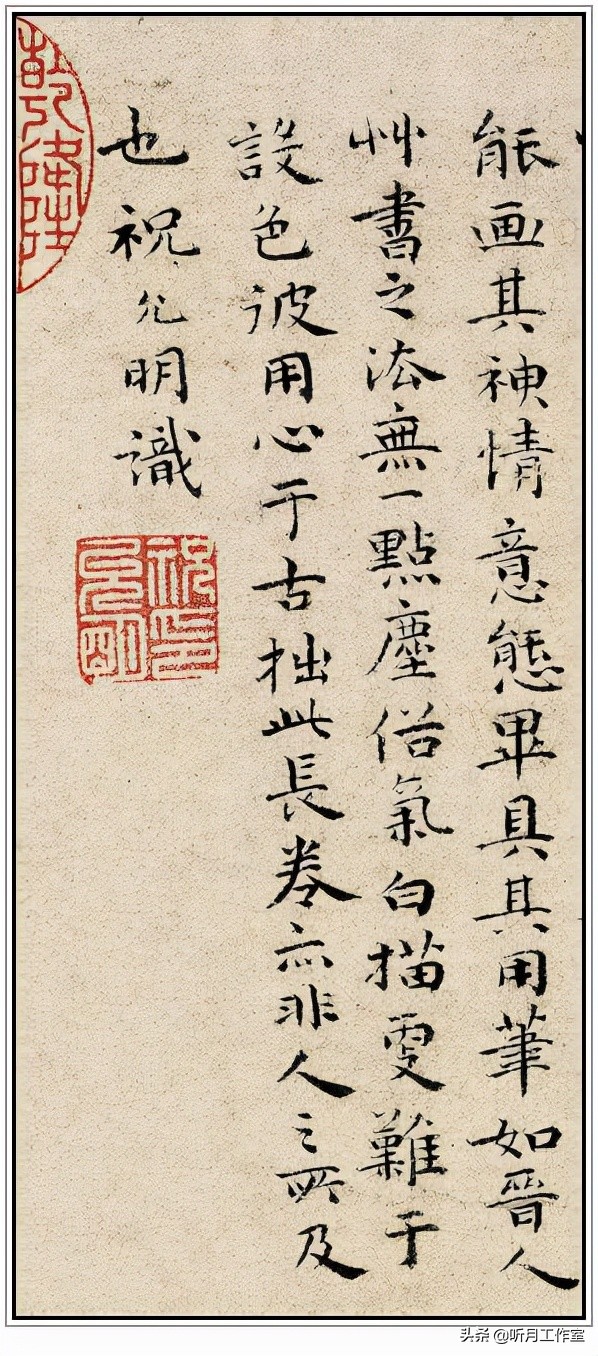 能画其神情意態畢具其用筆如晉人
艸書之法無一點塵俗氣白描更難于
設色彼用心于古拙此長卷亦非人之所及
也祝允明識
祝印允明
乾隆
头条 @听月工作室